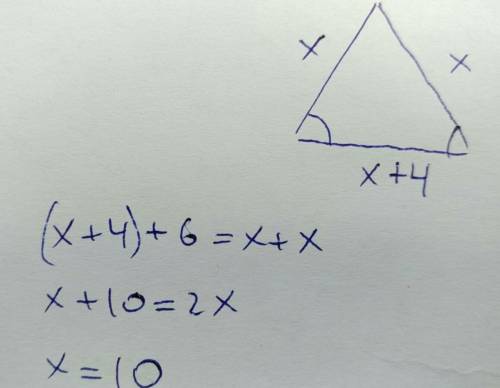 x x
x+4
(x+4)+6=x+x
x+10=2x
x=10